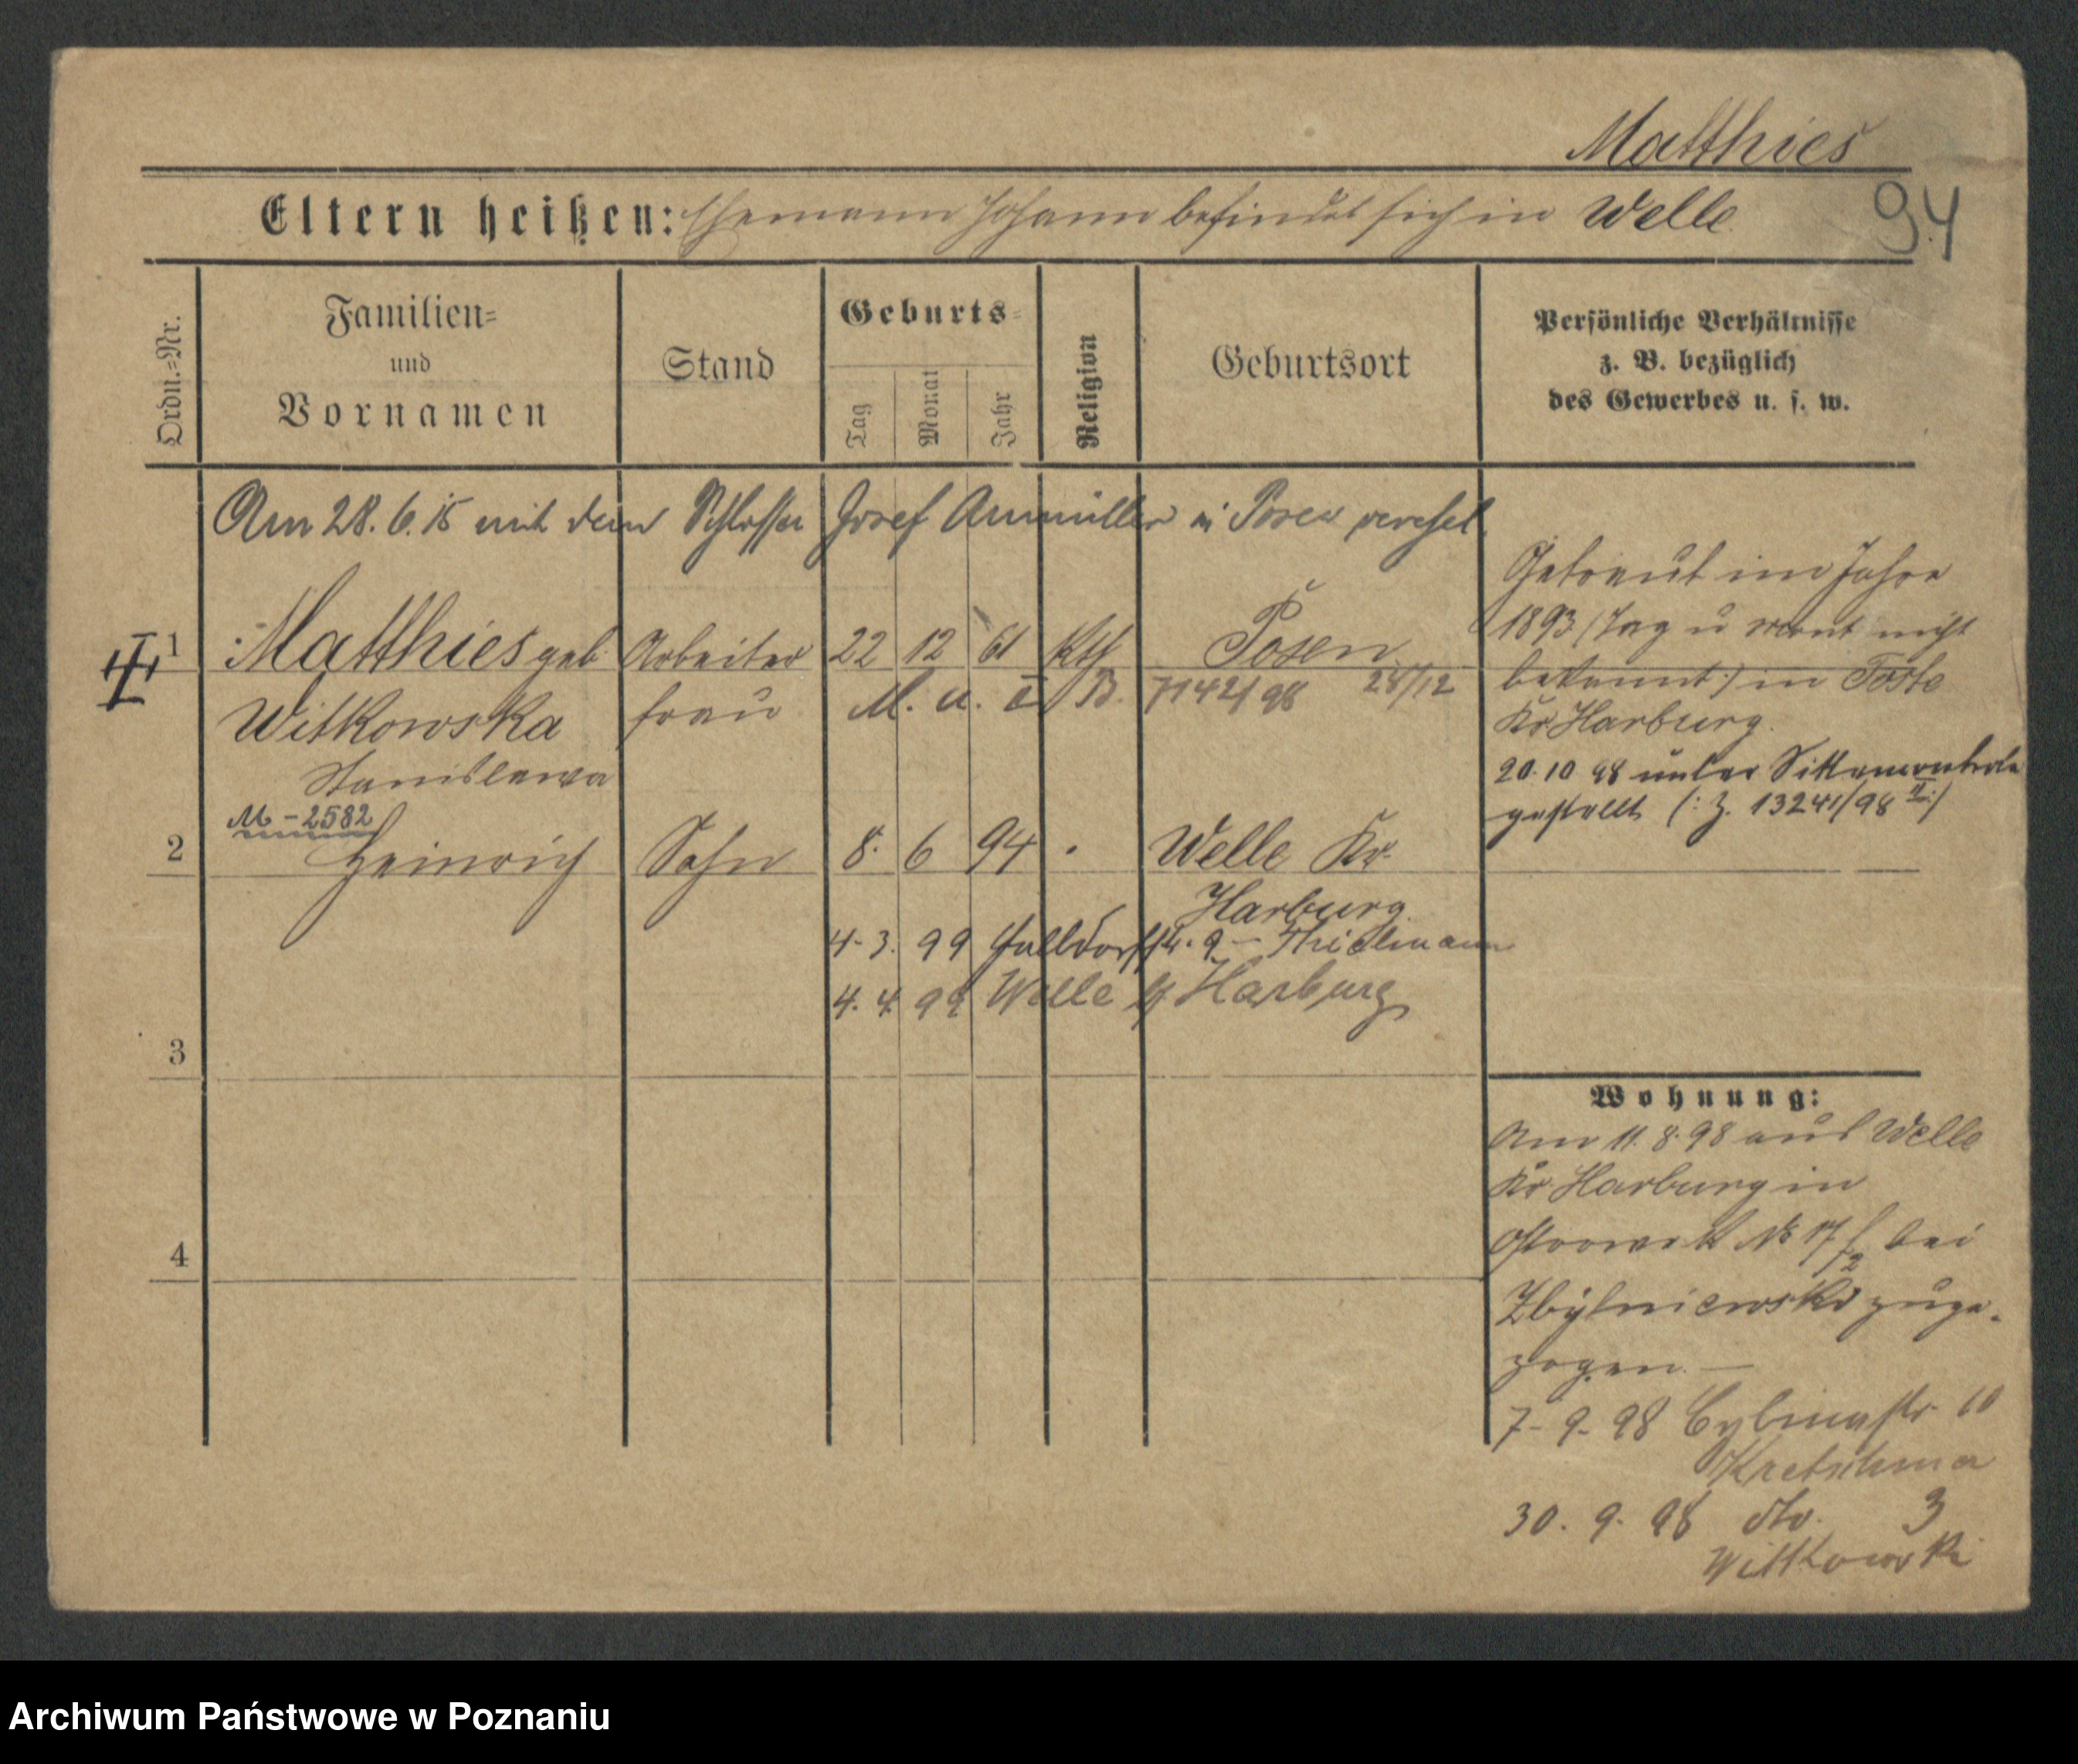 Matthies
Eltern heißen: Ehemann Johann befindet sich in Welle.
94
Ordn.=Nr.
Familien=
und
Vornamen
Stand
Geburts=
Tag
Monat
Jahr
Religion
Geburtsort
Persönliche Verhältnisse
z. B. bezüglich
des Gewerbes u. s. w.
Am 28. 6. 15 mit dem Schlosser Josef in Posen verehel.
1 Matthies geb. Arbeiter 22 12 61 Kth Posen
Witkowska frau M. u. II B. 7142/98 28/12
Stanislawa
M-2582
2 Heinrich Sohn 8. 6 94 Welle Kr.
Harburg.
4. 3. 99 14. 9 - Thielmann
4. 4. 99 Welle Harburg
3
4
Getraut im Jahre
1893 (Tag u Monat nicht
bekannt) in Toste
Kr. Harburg.
20. 10 98 unter Sittenkontrole
gestellt (: Z. 13241/98 II :)
Wohnung:
Am 11. 8. 98 aus Welle
Kr. Harburg in
Ostrowek No 17/2 bei
zuge-
zogen. —
7. 9. 98 Cybinastr. 10
Kretschmer
30. 9. 98 dto. 3
Wittkowski
Archiwum Państwowe w Poznaniu